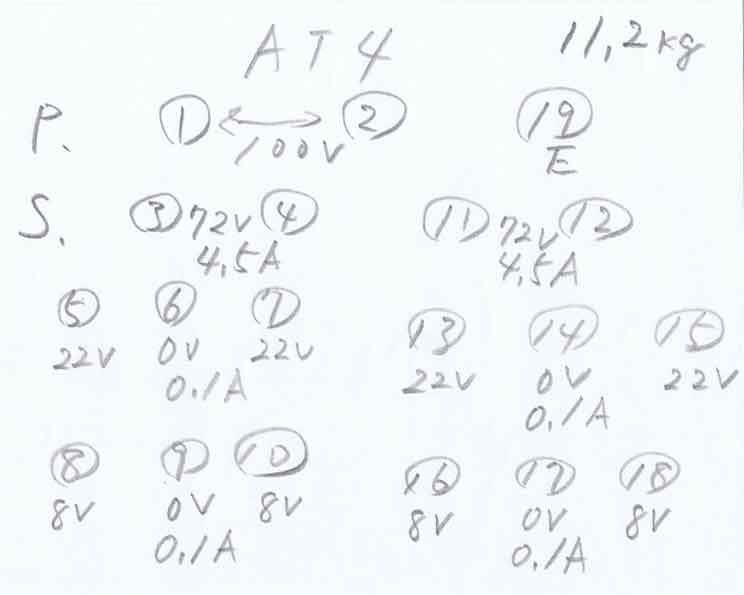 AT4 11,2kg
P. ① ↔ ② ⑲
100V E
S. ③ 72V ④ ⑪ 72V ⑫
4.5A 4.5A
⑤ ⑥ ⑦ ⑬ ⑭ ⑮
22V 0V 22V 22V 0V 22V
0.1A 0.1A
⑧ ⑨ ⑩ ⑯ ⑰ ⑱
8V 0V 8V 8V 0V 8V
0.1A 0.1A